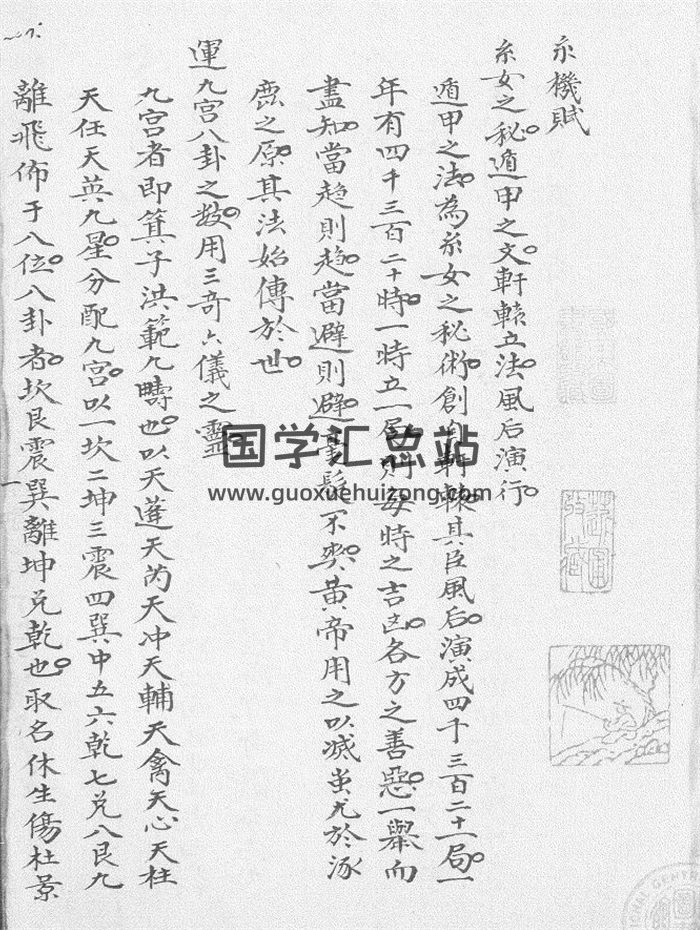 玄機賦
玄女之秘。遁甲之文。軒轅立法。風后演行。
遁甲之法。為玄女之秘術。創自軒轅。其臣風后。演成四千三百二十一局。一
年有四千三百二十時。一時立一局。則每時之吉凶。各方之善惡。一舉而
盡知。當趋則趋。當避則避。毫髮不爽。黃帝用之以滅蚩尤於涿
鹿之原。其法始傳於世。
運九宫八卦之数。用三奇六儀之靈
九宫者即箕子洪範九疇也。以天蓬天芮天冲天輔天禽天心天柱
天任天英九星。分配九宫。以一坎二坤三震四巽中五六乾七兌八艮九
離飛佈于八位。八卦者。坎艮震巽離坤兌乾也。取名休生傷杜景
国学汇总站
www.guoxuehuizong.com